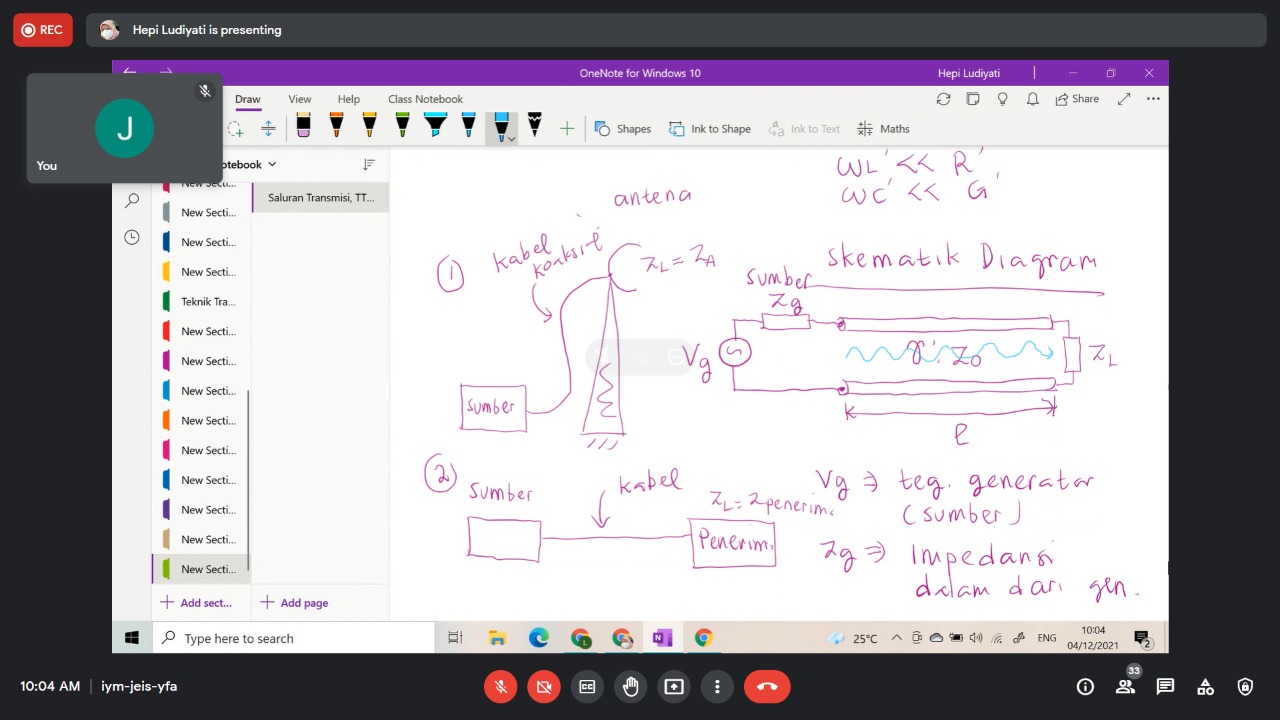 REC
Hepi Ludiyati is presenting
OneNote for Windows 10
Hepi Ludiyati
J
You
Draw
View
Help
Class Notebook
Share
Shapes
Ink to Shape
Ink to Text
Maths
otebook
New Secti...
New Secti...
New Secti...
New Secti...
Teknik Tra...
New Secti...
New Secti...
New Secti...
New Secti...
New Secti...
New Secti...
New Secti...
New Secti...
New Secti...
Add sect...
Saluran Transmisi, TT...
Add page
ωL' << R'
ωC' << G'
antena
1
kabel
koaksil
ZL = ZA
Sumber
Skematik Diagram
sumber
Zg
Vg
γ' Z0
ZL
l
2
Sumber
kabel
ZL = Zpenerim.
Penerim.
Vg ⇒ teg. generator
(sumber)
Zg ⇒ Impedansi
dalam dari gen.
Type here to search
25°C
ENG
10:04
04/12/2021
2
10:04 AM | iym-jeis-yfa
33